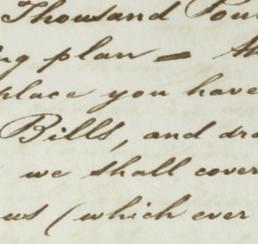 Thousand Pou
ng plan = th
place you have
Bills, and dra
we shall cover
us (which ever